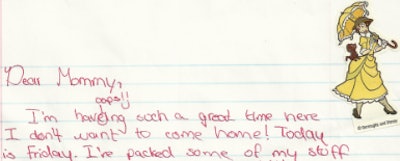 Dear Mommy,
oops!!
I'm having such a great time here
I don't want to come home! Today
is Friday. I've packed some of my stuff